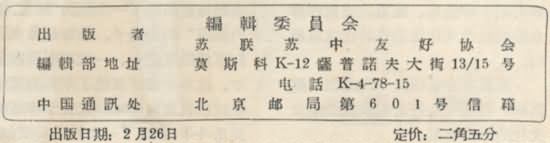 編輯委員会
出版者 苏联苏中友好协会
編輯部地址 莫斯科K-12薩普諾夫大街13/15号
电話 K-4-78-15
中国通訊处 北京邮局第601号信箱
出版日期：2月26日 定价：二角五分